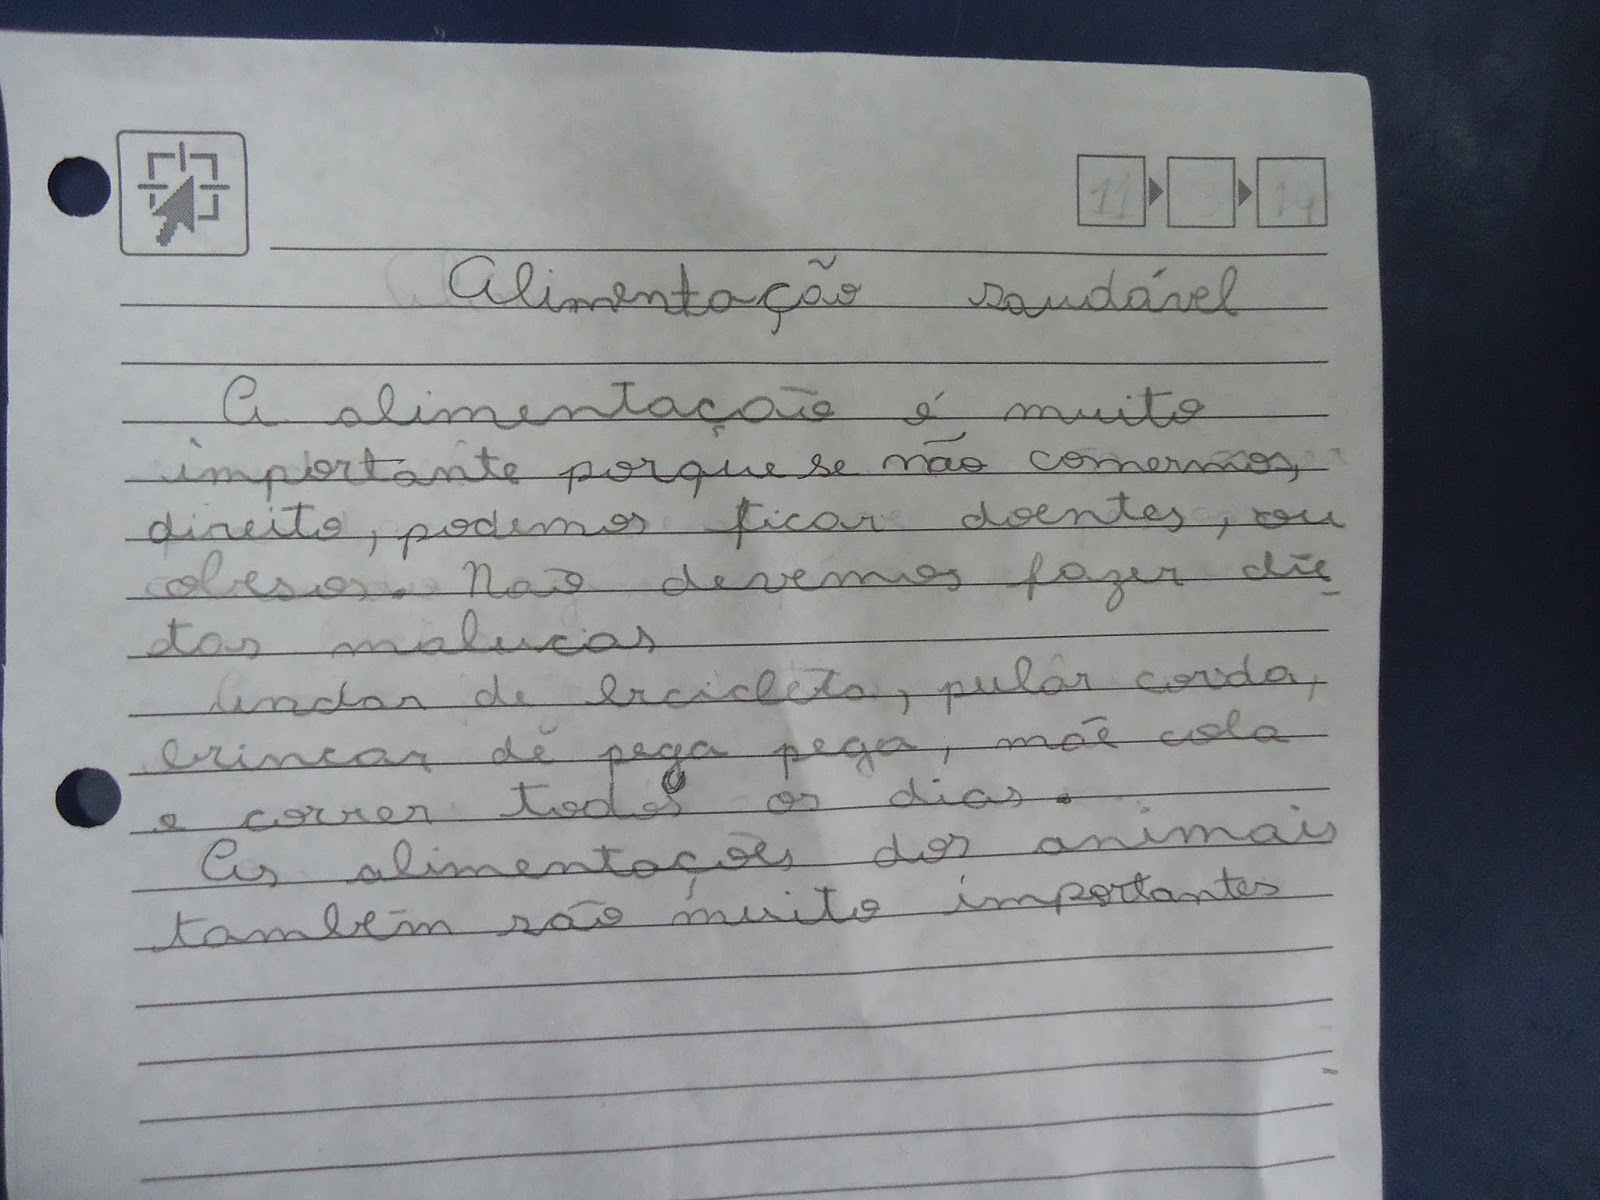 11 14
Alimentação saudável
A alimentação é muito
importante porque se não comermos,
direito, podemos ficar doentes, ou
obesos. Não devemos fazer die
tas malucas
Andar de bicicleta, pular corda,
brincar de pega pega, mãe cola
e correr todos os dias.
As alimentações dos animais
também são muito importantes